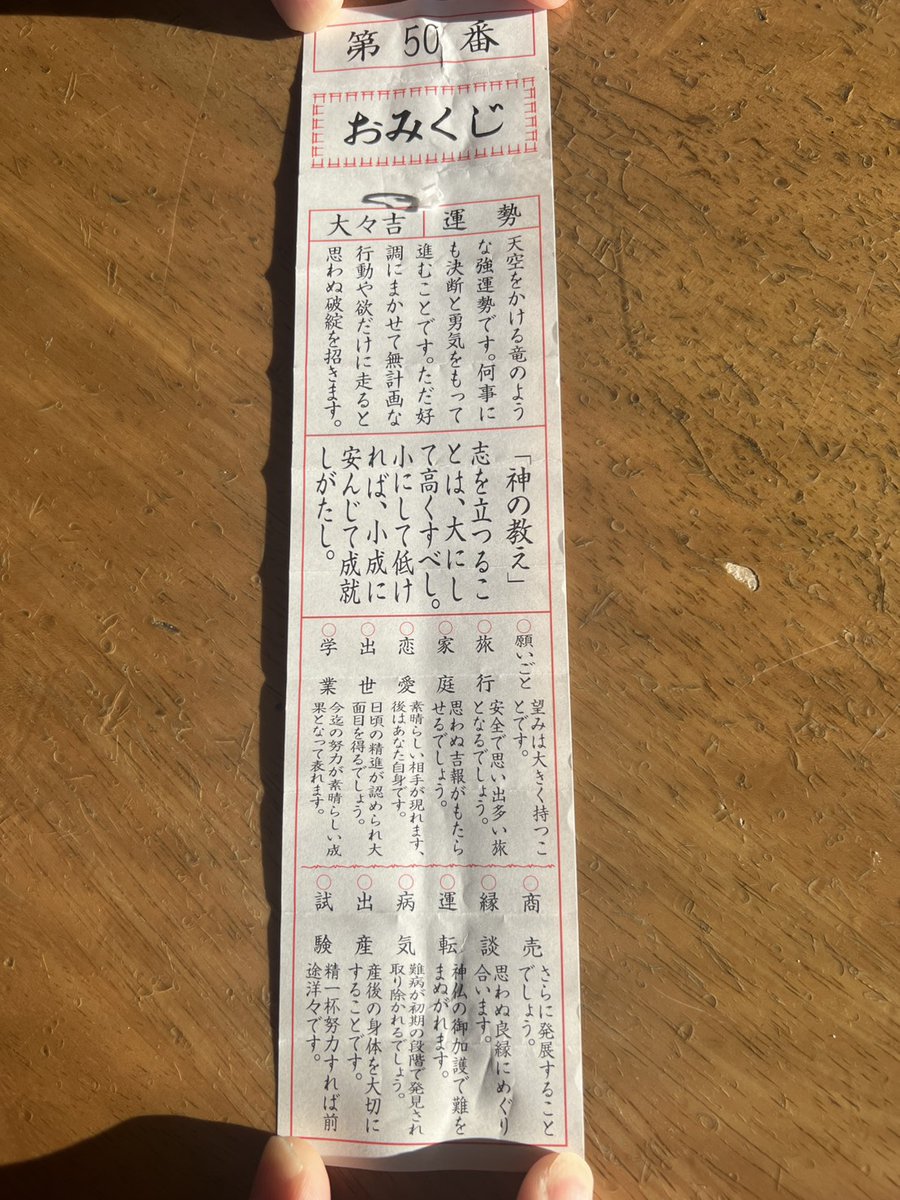 第50番
おみくじ
運勢
大々吉
天空をかける竜のよう
な強運勢です。何事に
も決断と勇気をもって
進むことです。ただ好
調にまかせて無計画な
行動や欲だけに走ると
思わぬ破綻を招きます。
「神の教え」
志を立つるこ
とは、大にし
て高くすべし。
小にして低け
れば、小成に
安んじて成就
しがたし。
○願いごと
望みは大きく持つこ
とです。
○旅行
安全で思い出多い旅
となるでしょう。
○家庭
思わぬ吉報がもたら
せるでしょう。
○恋愛
素晴らしい相手が現れます、
後はあなた自身です。
○出世
日頃の精進が認められ大
面目を得るでしょう。
○学業
今迄の努力が素晴らしい成
果となって表れます。
○商売
さらに発展すること
でしょう。
○縁談
思わぬ良縁にめぐり
合います。
○運転
神仏の御加護で難を
まぬがれます。
○病気
難病が初期の段階で発見され
取り除かれるでしょう。
○出産
産後の身体を大切に
することです。
○試験
精一杯努力すれば前
途洋々です。